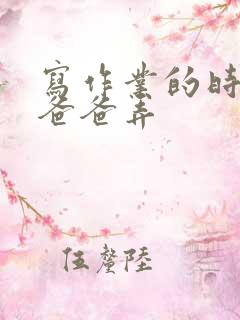 寫作業的時
爸爸弄
伍釐陸